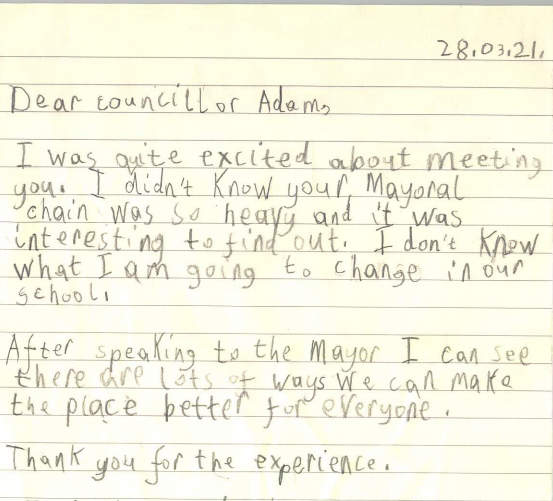 28.03.21.
Dear councillor Adams,
I was quite excited about meeting
you. I didn't know your Mayoral
chain was so heavy and it was
interesting to find out. I don't know
what I am going to change in our
school.
After speaking to the Mayor I can see
there are lots of ways we can make
the place better for everyone.
Thank you for the experience.